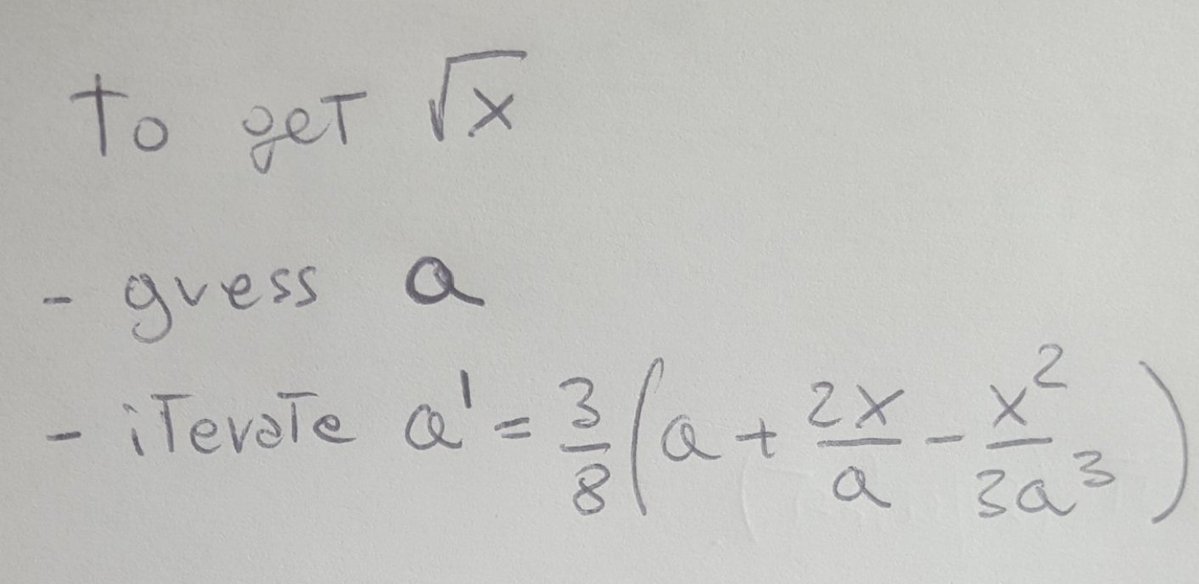 To get √x
- guess a
- iterate a' = 3/8 (a + 2x/a - x²/3a³)